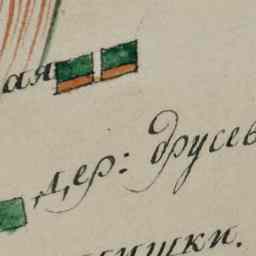 ая
дер: друсев
ишки.